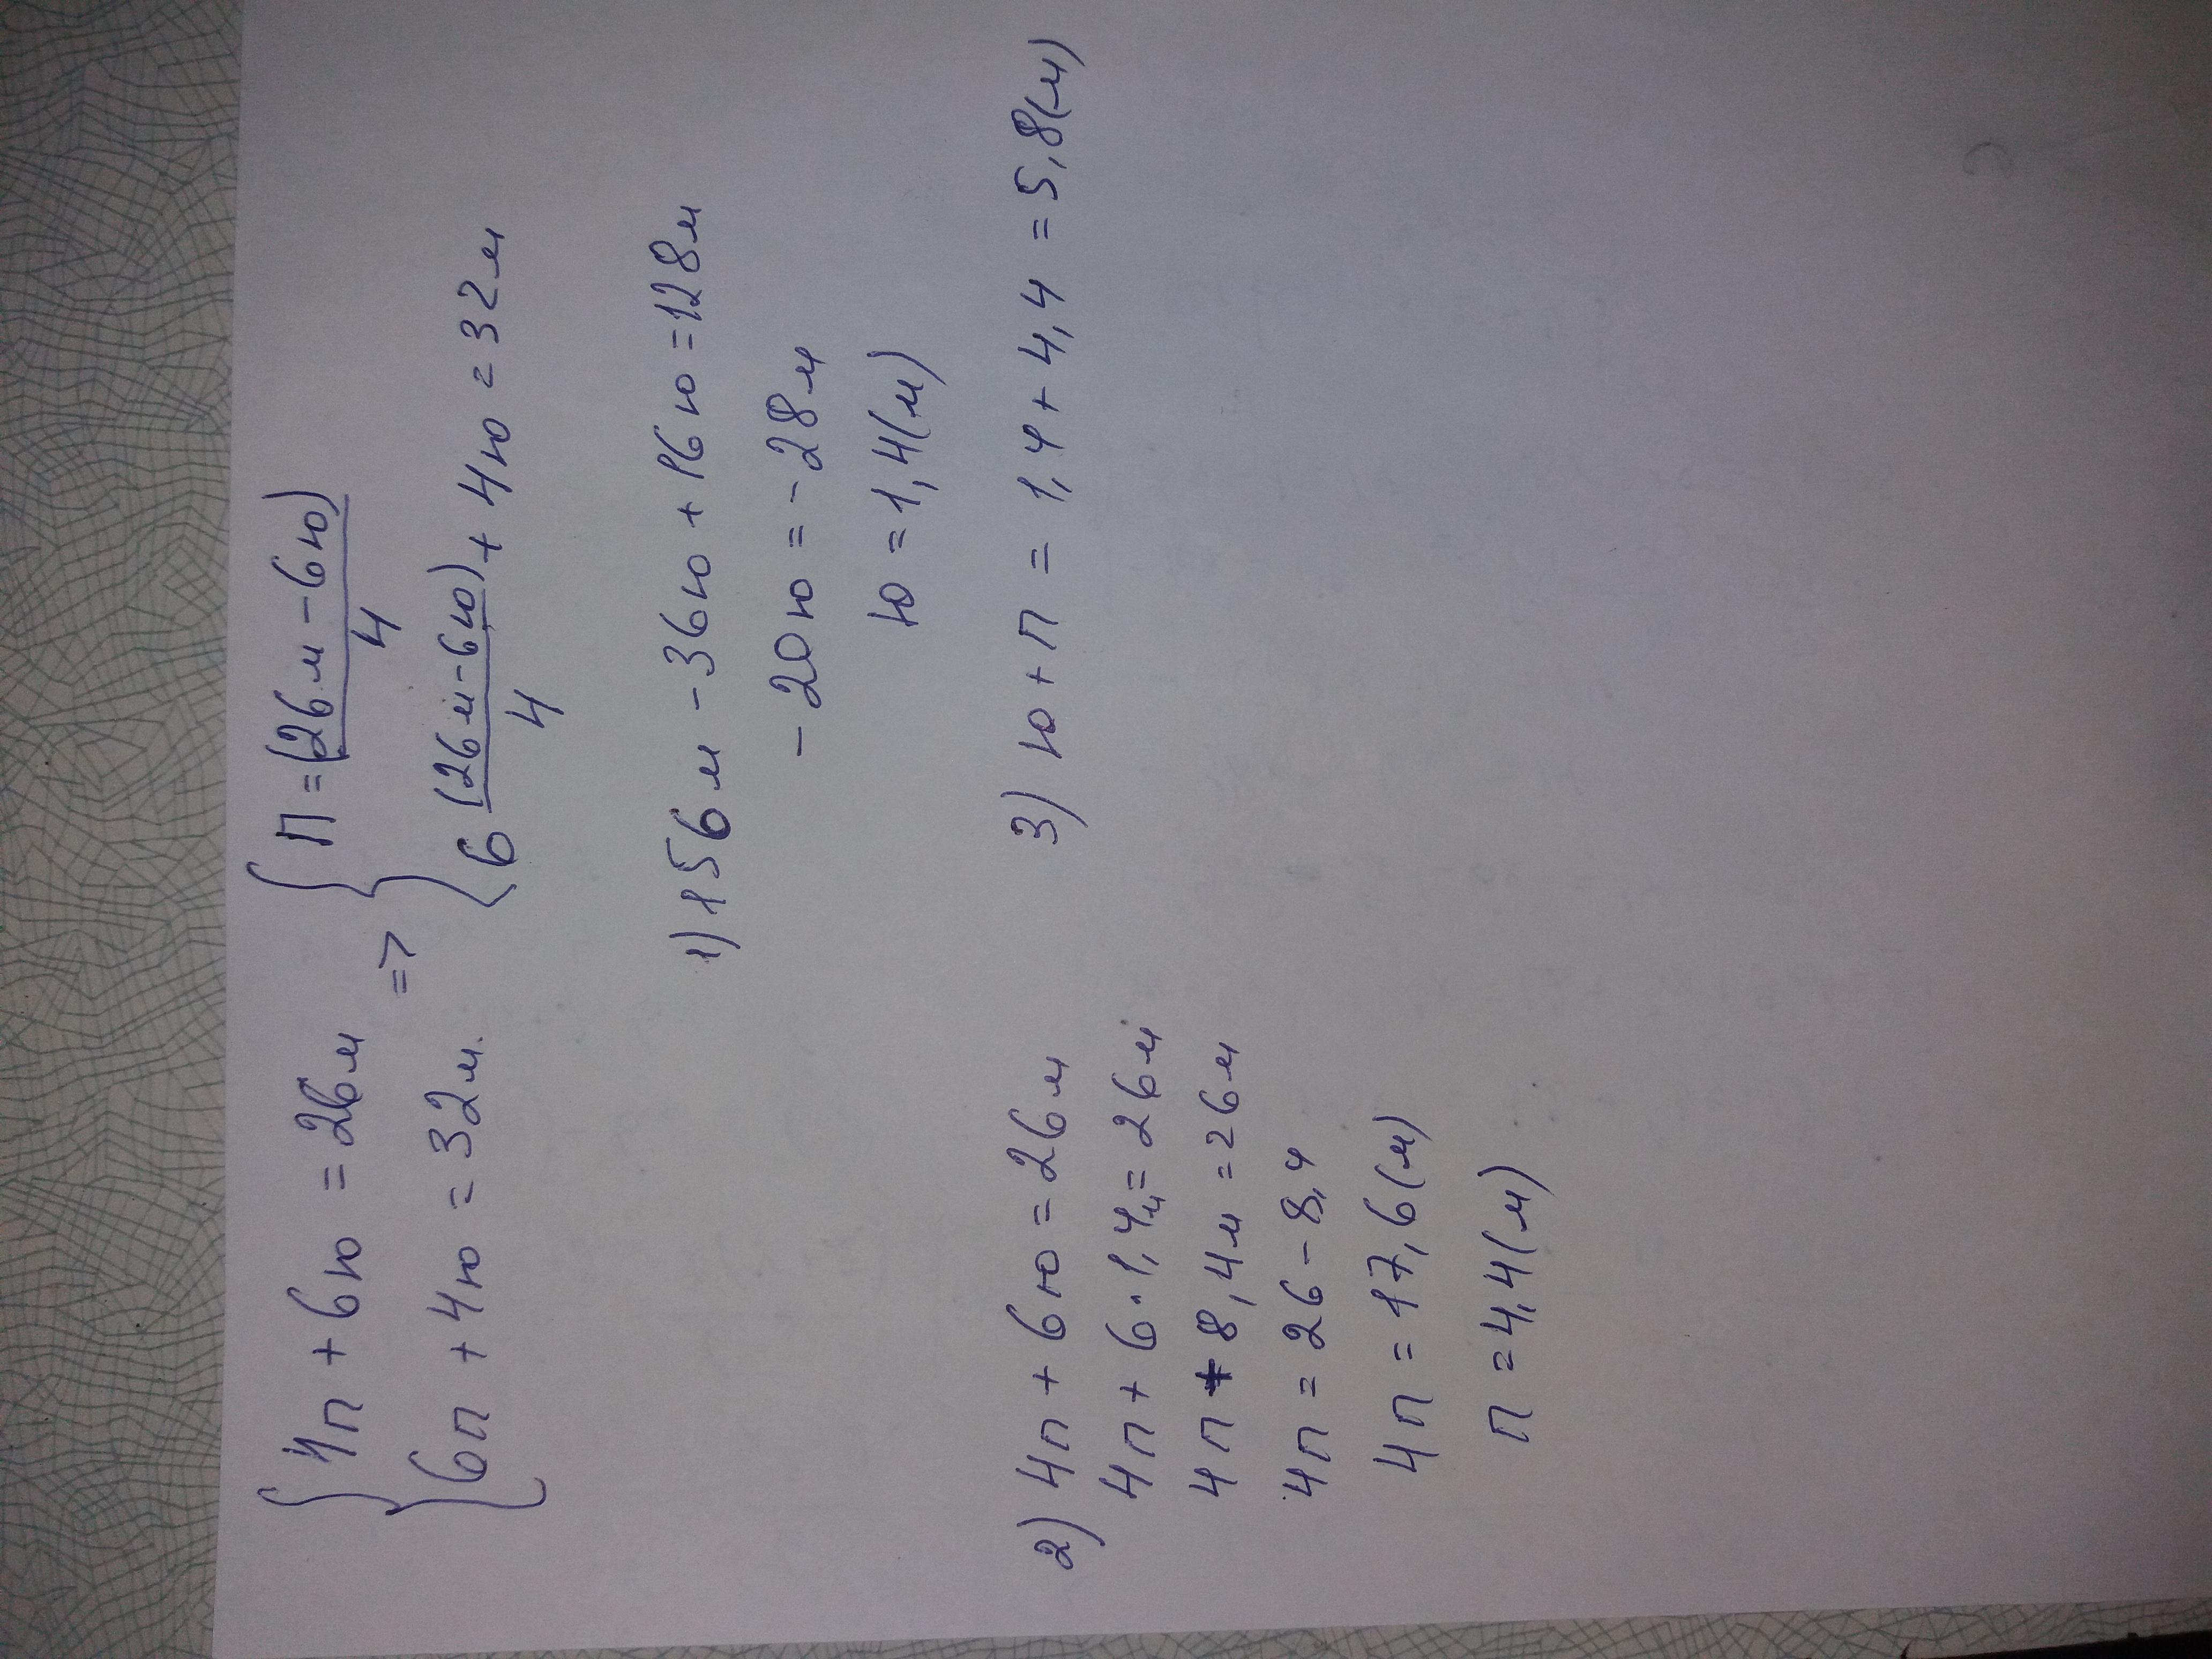 4п + 6ю = 26м => п = (26м - 6ю)
4
6п + 4ю = 32м. 6 (26м - 6ю) + 4ю = 32м
4
1) 156м - 36ю + 16ю = 128м
-20ю = -28м
ю = 1,4(м)
2) 4п + 6ю = 26м
4п + 6·1,4м = 26м
4п + 8,4м = 26м
4п = 26 - 8,4
4п = 17,6(м)
п = 4,4(м)
3) ю + п = 1,4 + 4,4 = 5,8(м)